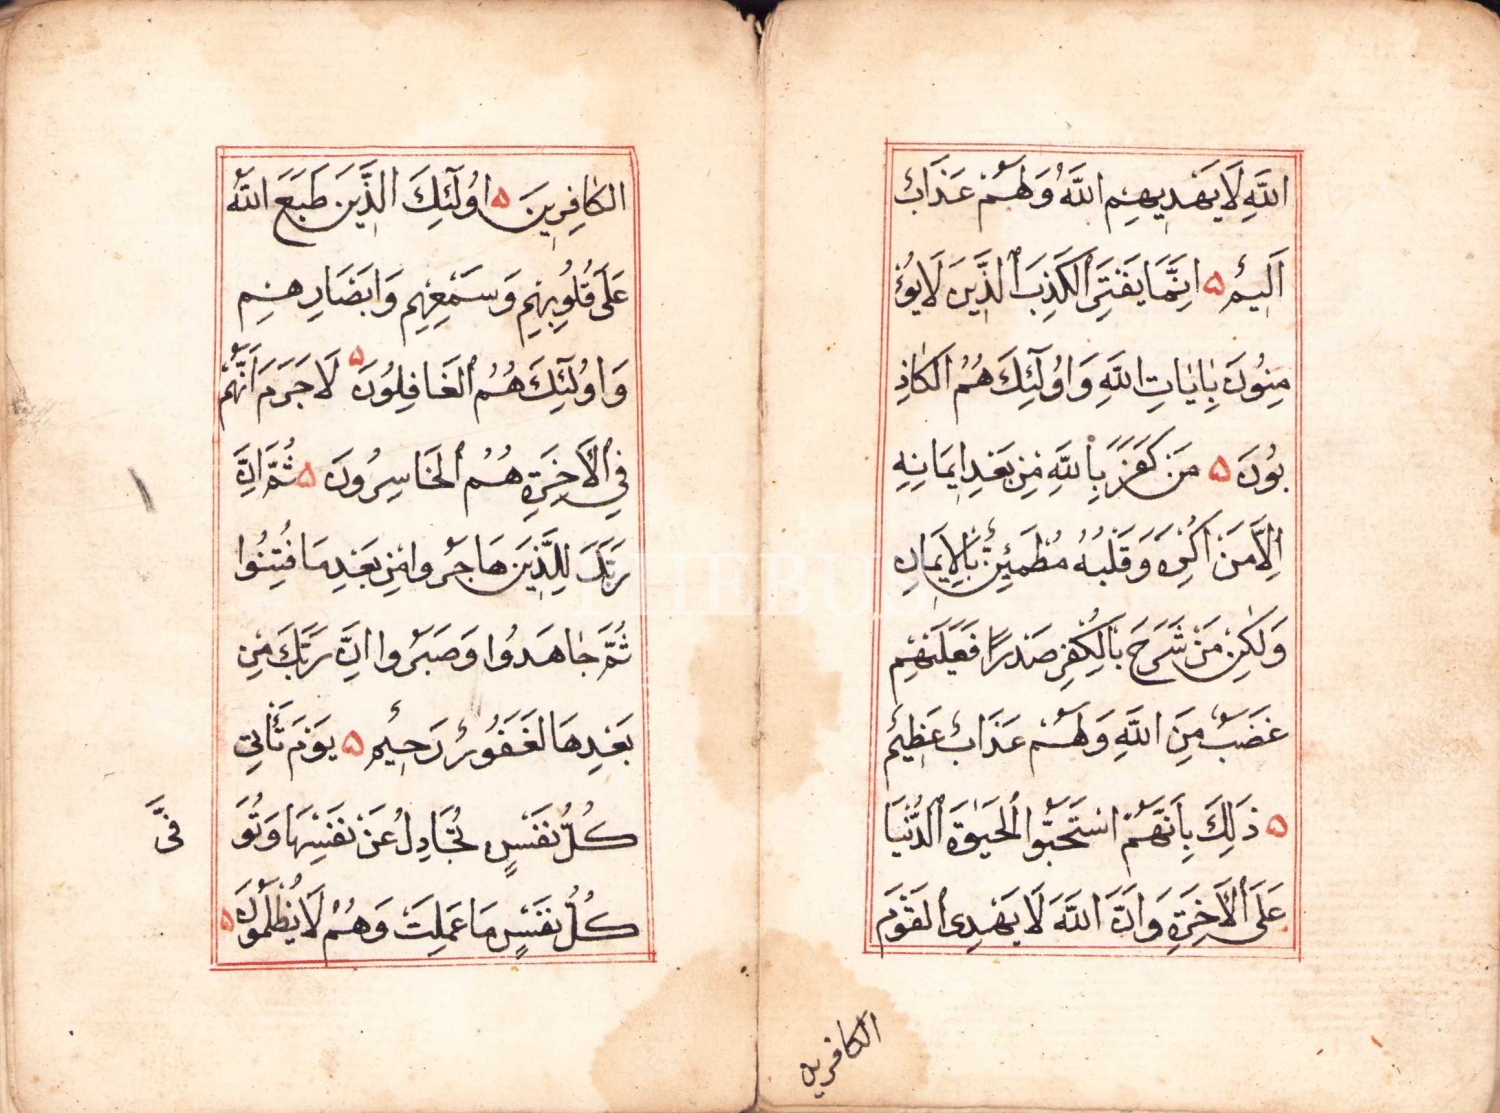 اللَّهِ لَا يَهْدِيهِمِ اللَّهُ وَلَهُمْ عَذَابٌ
اَلِيمٌ ۵ اِنَّمَا يَفْتَرِى الْكَذِبَ الَّذِينَ لَا يُؤْ
مِنُونَ بِاٰيَاتِ اللَّهِ وَاُولٰٓئِكَ هُمُ الْكَاذِ
بُونَ ۵ مَنْ كَفَرَ بِاللَّهِ مِنْ بَعْدِ اِيمَانِهِ
اِلَّا مَنْ اُكْرِهَ وَقَلْبُهُ مُطْمَئِنٌّ بِالْاِيمَانِ
وَلٰكِنْ مَنْ شَرَحَ بِالْكُفْرِ صَدْرًا فَعَلَيْهِمْ
غَضَبٌ مِنَ اللَّهِ وَلَهُمْ عَذَابٌ عَظِيمٌ
۵ ذٰلِكَ بِاَنَّهُمُ اسْتَحَبُّوا الْحَيٰوةَ الدُّنْيَا
عَلَى الْاٰخِرَةِ وَاَنَّ اللَّهَ لَا يَهْدِى الْقَوْمَ
الكافرين
الْكَافِرِينَ ۵ اُولٰٓئِكَ الَّذِينَ طَبَعَ اللَّهُ
عَلَى قُلُوبِهِمْ وَسَمْعِهِمْ وَاَبْصَارِهِمْ
وَاُولٰٓئِكَ هُمُ الْغَافِلُونَ ۵ لَا جَرَمَ اَنَّهُمْ
فِي الْاٰخِرَةِ هُمُ الْخَاسِرُونَ ۵ ثُمَّ اِنَّ
رَبَّكَ لِلَّذِينَ هَاجَرُوا مِنْ بَعْدِ مَا فُتِنُوا
ثُمَّ جَاهَدُوا وَصَبَرُوا اِنَّ رَبَّكَ مِنْ
بَعْدِهَا لَغَفُورٌ رَحِيمٌ ۵ يَوْمَ تَأْتِي
كُلُّ نَفْسٍ تُجَادِلُ عَنْ نَفْسِهَا وَتُوَ
فّىَ
كُلُّ نَفْسٍ مَا عَمِلَتْ وَهُمْ لَا يُظْلَمُونَ ۵
PHEBUS